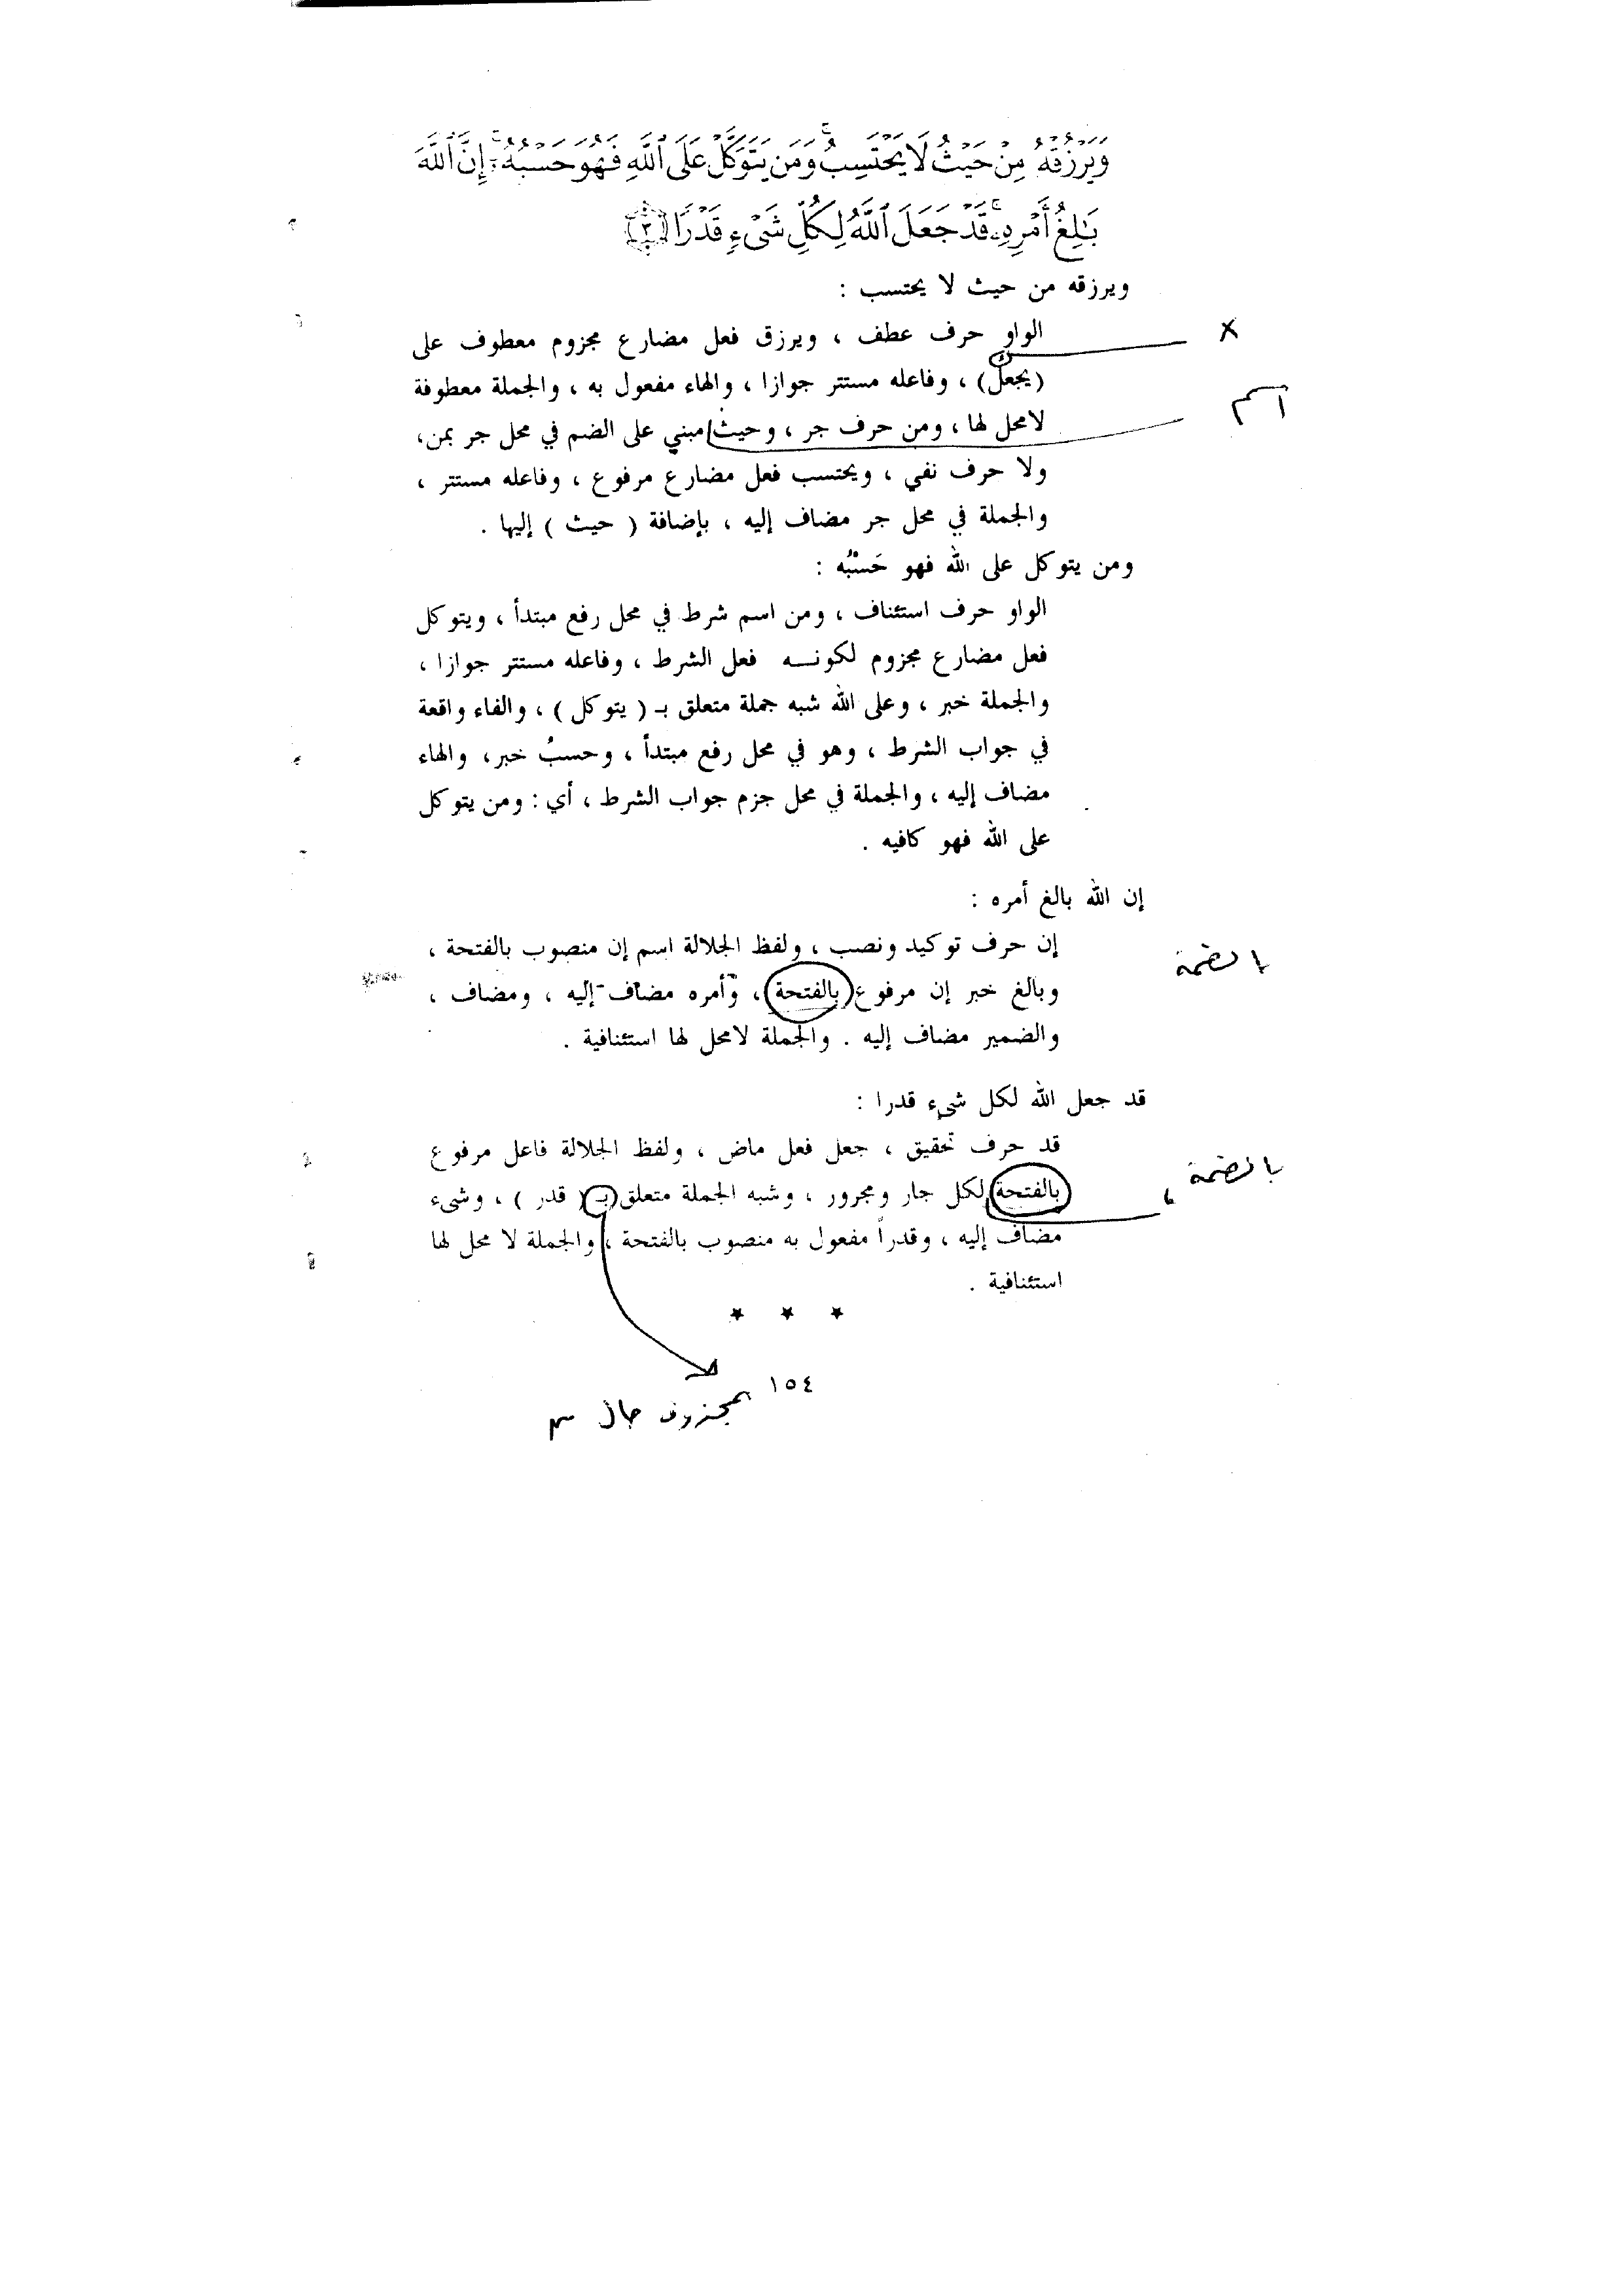 وَيَرْزُقْهُ مِنْ حَيْثُ لَا يَحْتَسِبُ ۚ وَمَن يَتَوَكَّلْ عَلَى ٱللَّهِ فَهُوَ حَسْبُهُۥٓ ۚ إِنَّ ٱللَّهَ
بَٰلِغُ أَمْرِهِۦ ۚ قَدْ جَعَلَ ٱللَّهُ لِكُلِّ شَىْءٍ قَدْرًا ٣
ويرزقه من حيث لا يحتسب :
الواو حرف عطف ، ويرزق فعل مضارع مجزوم معطوف على
(يجعل) ، وفاعله مستتر جوازا ، والهاء مفعول به ، والجملة معطوفة
لامحل لها ، ومن حرف جر ، وحيث مبني على الضم في محل جر بمن ،
اسم
ولا حرف نفي ، ويحتسب فعل مضارع مرفوع ، وفاعله مستتر ،
والجملة في محل جر مضاف إليه ، بإضافة ( حيث ) إليها .
ومن يتوكل على الله فهو حَسْبُه :
الواو حرف استئناف ، ومن اسم شرط في محل رفع مبتدأ ، ويتوكل
فعل مضارع مجزوم لكونه فعل الشرط ، وفاعله مستتر جوازا ،
والجملة خبر ، وعلى الله شبه جملة متعلق بـ ( يتوكل ) ، والفاء واقعة
في جواب الشرط ، وهو في محل رفع مبتدأ ، وحسبُ خبر ، والهاء
مضاف إليه ، والجملة في محل جزم جواب الشرط ، أي : ومن يتوكل
على الله فهو كافيه .
إن الله بالغ أمره :
إن حرف توكيد ونصب ، ولفظ الجلالة اسم إن منصوب بالفتحة ،
بالضمة
وبالغ خبر إن مرفوع بالفتحة ، وأمره مضاف إليه ، ومضاف ،
والضمير مضاف إليه . والجملة لامحل لها استئنافية .
قد جعل الله لكل شيء قدرا :
قد حرف تحقيق ، جعل فعل ماض ، ولفظ الجلالة فاعل مرفوع
بالضمة ،
بالفتحة لكل جار ومجرور ، وشبه الجملة متعلق بـ ( قدر ) ، وشيء
مضاف إليه ، وقدراً مفعول به منصوب بالفتحة ، والجملة لا محل لها
استئنافية .
* * *
١٥٤
بمحذوف حال من